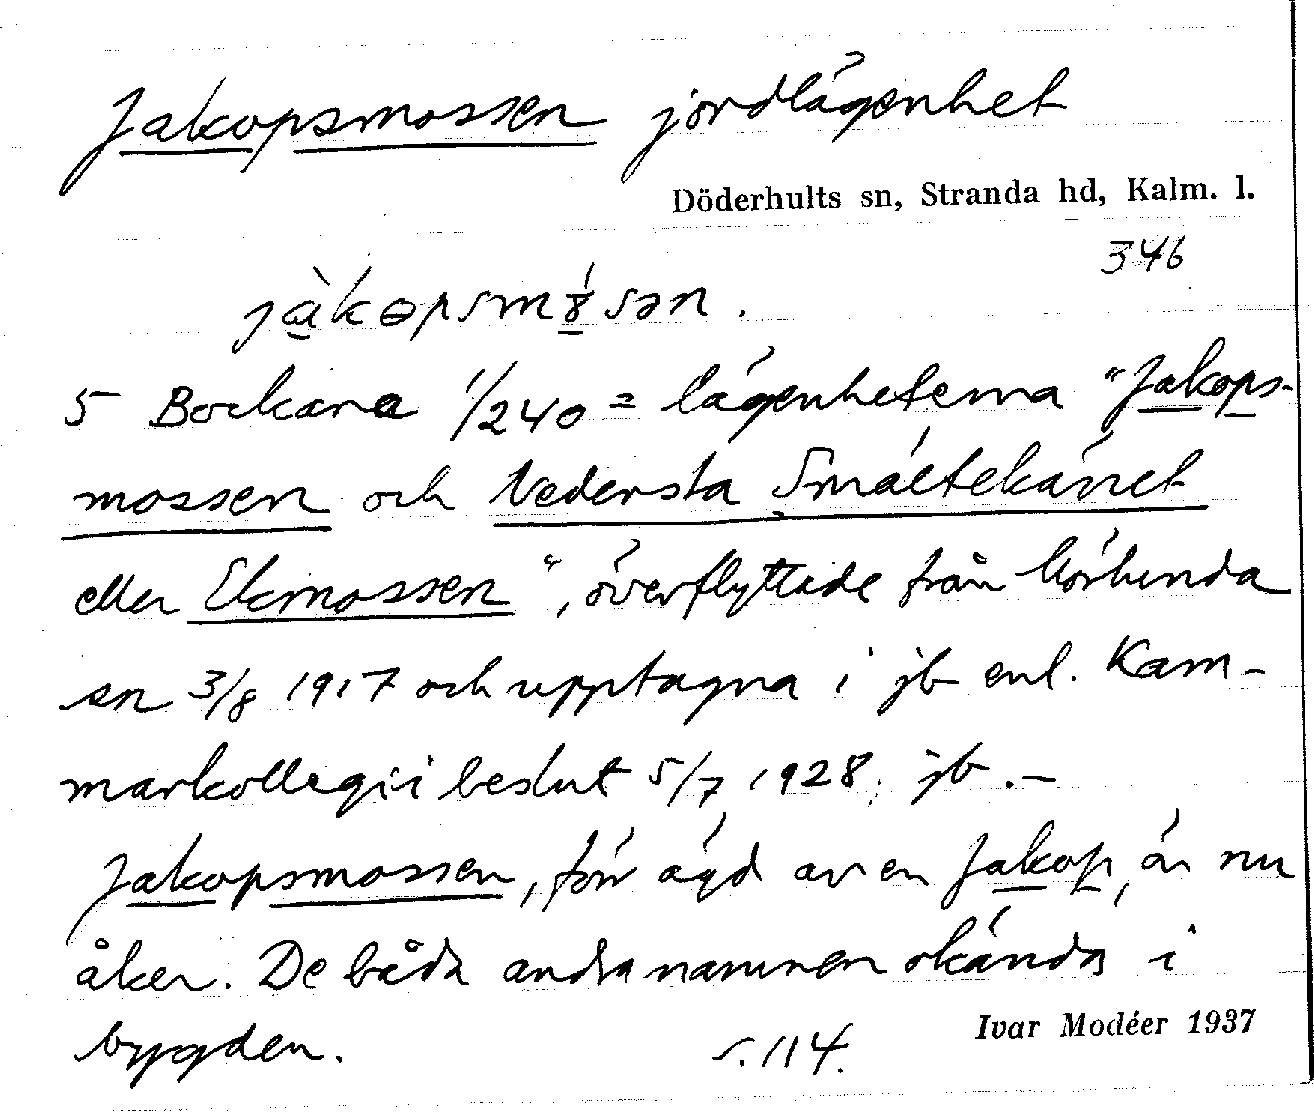 Jakopsmossen jordlägenhet
Döderhults sn, Stranda hd, Kalm. l.
346
jàkɵpsmɣ́sən.
5 Bockara 1/240 = lägenheterna "Jakops-
mossen och Nedersta Smältekärret
eller Ekmossen", överflyttade från Mörlunda
sn 3/8 1917 och upptagna i jb enl. Kam-
markollegii beslut 5/7 1928. jb. –
Jakopsmossen, förr ägd av en Jakop, är nu
åker. De båda andra namnen okända i
bygden. s. 114.
Ivar Modéer 1937